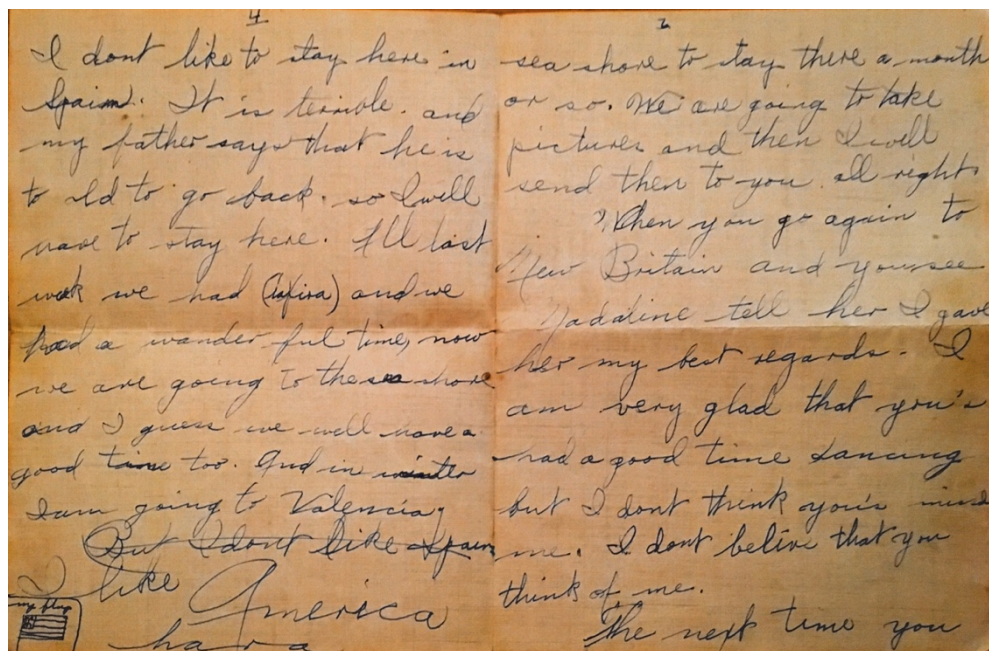 4
I dont like to stay here in
Spain. It is terrible. and
my father says that he is
to old to go back. so I will
have to stay here. All last
week we had (lafira) and we
had a wander ful time, now
we are going to the sea shore
and I guess we will have a
good time too. And in winter
I am going to Valencia,
But I dont like Spain
I like
America
my flag
ha ra
2
sea shore to stay there a month
or so. We are going to take
pictures and then I will
send then to you all right.
When you go again to
New Britain and you see
Madaline tell her I gave
her my best regards. I
am very glad that you's
had a good time dancing
but I dont think you's mind
me. I dont belive that you
think of me.
The next time you